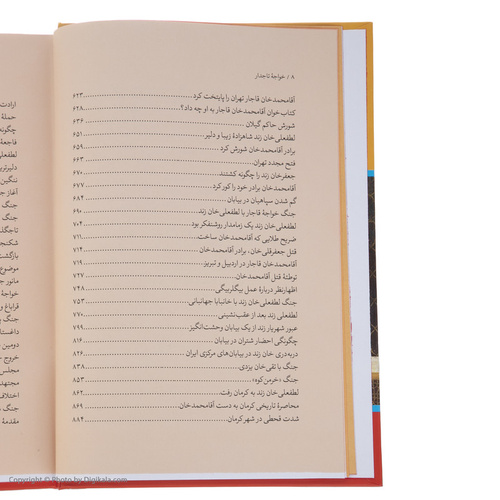 ۸ / خواجهٔ تاجدار
آقامحمدخان قاجار تهران را پایتخت کرد ۶۲۳
کتاب خوان آقامحمدخان قاجار به او چه داد؟ ۶۲۸
شورش حاکم گیلان ۶۳۶
لطفعلی خان زند شاهزادهٔ زیبا و دلیر ۶۵۱
برادر آقامحمدخان شورش کرد ۶۵۹
فتح مجدد تهران ۶۶۳
جعفرخان زند را چگونه کشتند ۶۷۰
آقامحمدخان برادر خود را کور کرد ۶۷۷
گم شدن سپاهیان در بیابان ۶۸۴
جنگ خواجهٔ قاجار با لطفعلی خان زند ۶۹۰
لطفعلی خان زند یک زمامدار روشنفکر بود ۷۰۲
ضریح طلایی که آقامحمدخان ساخت ۷۱۱
قتل جعفرقلی خان، برادر آقامحمدخان ۷۱۴
آقامحمدخان قاجار در اردبیل و تبریز ۷۱۹
توطئهٔ قتل آقامحمدخان ۷۲۷
اظهارنظر دربارهٔ عمل بیگلربیگی ۷۴۸
جنگ لطفعلی خان زند با خانبابا جهانبانی ۷۵۳
لطفعلی زند بعد از عقب نشینی ۷۷۰
عبور شهریار زند از یک بیابان وحشت انگیز ۷۹۹
چگونگی احضار شتران در بیابان ۸۱۶
دربه دری خان زند در بیابان های مرکزی ایران ۸۲۶
جنگ با تقی خان یزدی ۸۳۸
جنگ «خرمن کوه» ۸۵۳
لطفعلی زند به کرمان رفت ۸۶۲
محاصرهٔ تاریخی کرمان به دست آقامحمدخان ۸۶۹
شدت قحطی در شهر کرمان ۸۸۴
ارادت
حملهٔ
چگونه
فاجعهٔ
لطفعلی
دلیرترین
ننگین
آغاز
جنگ
جنگ
تاجگذ
شکنجه
بازگشت
موضوع
مانور
خواجهٔ
قراباغ و
جنگ
داغستان
دومین
خروج
مجلس
مجتهد
اختلاف
جنگ
مقدمهٔ
Copyright © Photo by Digikala.com